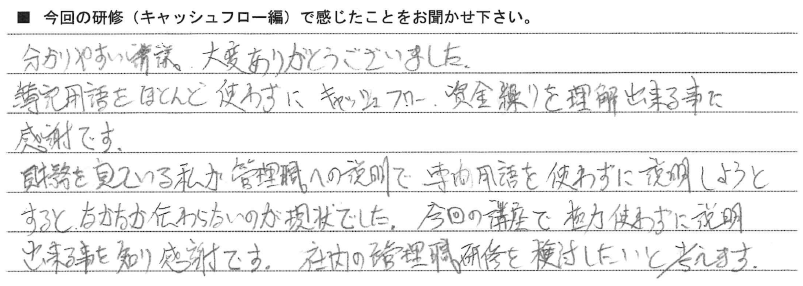 ■ 今回の研修（キャッシュフロー編）で感じたことをお聞かせ下さい。
分かりやすい講議。大変ありがとうございました。
簿記用語をほとんど使わずに キャッシュフロー、資金繰りを理解出来る事に
感謝です。
財務を見ている私が管理職への説明で専門用語を使わずに説明しようと
すると、なかなか伝わらないのが現状でした。今回の講座で極力使わずに説明
出来る事を知り感謝です。社内の管理職研修を検討したいと考えます。